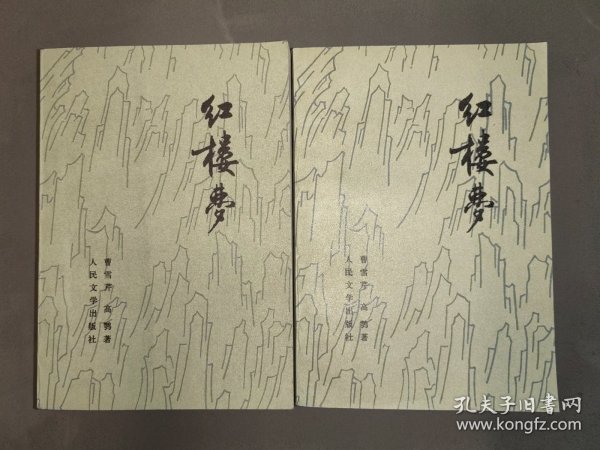 红楼梦
曹雪芹 高鹗著
人民文学出版社
红楼梦
曹雪芹 高鹗著
人民文学出版社
孔夫子旧书网
www.kongfz.com